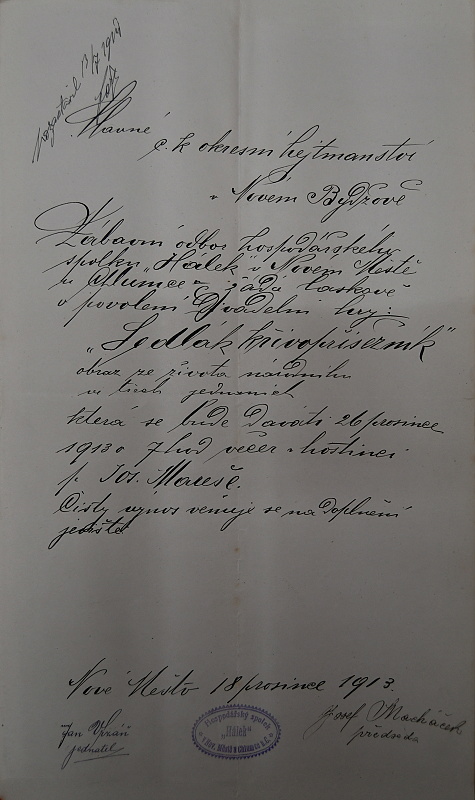 Slavné
c. k. okresní hejtmanství
v Novém Bydžově
Zábavní odbor hospodářského
spolku "Hálek" v Novém Městě
n Chlumce n žádá laskavě
o povolení Divadelní hry:
"Sedlák křivopřísežník"
obraz ze života národního
ve třech jednáních
která se bude dávati 26 prosince
1913 o 7 hod večer v hostinci
p. Jos. Mareše.
Čistý výnos věnuje se na doplnění
jeviště.
Nové Město 18 prosince 1913.
Jan
jednatel
Hospodářský spolek
"Hálek"
v Nov. Městě u Chlumce n. C.
Josef Macháček
předseda